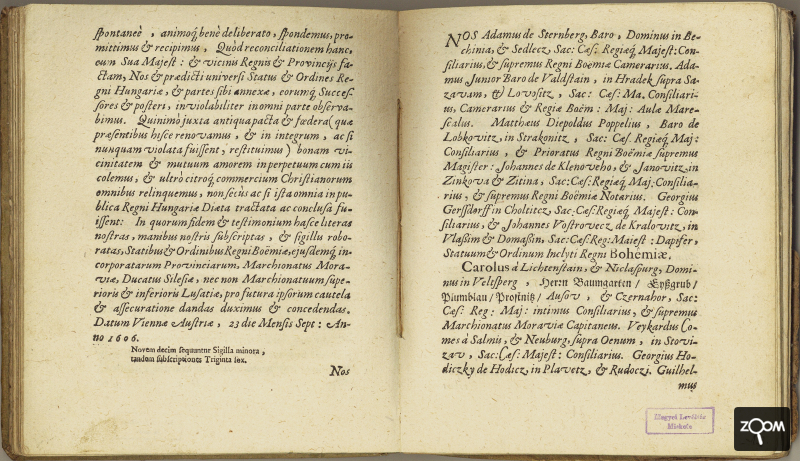 ſpontaneè, animoq́ benè deliberato, ſpondemus, pro-
mittimus & recipimus, Quòd reconciliationem hanc,
cum Sua Majeſt: & vicinis Regnis & Provincijs fa-
ctam, Nos & prædicti univerſi Status & Ordines Re-
gni Hungariæ, & partes ſibi annexæ, eorumq́ Succeſ-
ſores & poſteri, inviolabiliter in omni parte obſerva-
bimus. Quinimò juxta antiqua pacta & fœdera (quæ
præſentibus hiſce renovamus, & in integrum, ac ſi
nunquam violata fuiſſent, reſtituimus) bonam vi-
cinitatem & mutuum amorem in perpetuum cum iis
colemus, & ultrò citroq́ commercium Chriſtianorum
omnibus relinquemus, non ſecùs ac ſi iſta omnia in pu-
blica Regni Hungariæ Diæta tractata ac concluſa fu-
iſſent: In quorum fidem & teſtimonium haſce literas
noſtras, manibus noſtris ſubſcriptas, & ſigillis robo-
ratas, Statibus & Ordinibus Regni Boëmiæ, ejuſdemq́ in-
corporatarum Provinciarum, Marchionatus Mora-
viæ, Ducatus Sileſiæ, nec non Marchionatuum ſupe-
rioris & inferioris Luſatiæ, pro futura ipſorum cautela
& aſſecuratione dandas duximus & concedendas.
Datum Viennæ Auſtriæ, 23 die Menſis Sept: An-
no 1606.
Novem decim ſequuntur Sigilla minora,
tandem ſubſcriptiones Triginta ſex.
Nos
NOS Adamus de Sternberg, Baro, Dominus in Be-
chinia, & Sedlecz, Sac: Cæſ: Regiæq́ Majeſt: Con-
ſiliarius, & ſupremus Regni Boëmiæ Camerarius. Ada-
mus Junior Baro de Valdſtain, in Hradek ſupra Sa-
zavam, & Lovoſitz, Sac: Cæſ: Ma. Conſiliari-
us, Camerarius & Regiæ Boëm: Maj: Aulæ Mare-
ſcalus. Matthæus Diepoldus Poppelius, Baro de
Lobkovitz, in Strakonitz, Sac: Cæſ. Regiæq́ Maj:
Conſiliarius, & Prioratus Regni Boëmiæ ſupremus
Magiſter: Johannes de Klenoveho, & Janovitz, in
Zinkova & Zitina, Sac: Cæſ: Regiæq́ Maj: Conſilia-
rius, & ſupremus Regni Boëmiæ Notarius. Georgius
Gerſſdorff in Choltitcz, Sac: Cæſ: Regiæq́ Majeſt: Con-
ſiliarius, & Johannes Voſtrovecz, de Kralovitz, in
Vlaſſim & Domaſſin, Sac: Cæſ: Reg: Maieſt: Dapifer,
Statuum & Ordinum Inclyti Regni Bohemiæ.
Carolus á Lichtenſtain, & Niclaſpurg, Domi-
nus in Veltſperg, Herrn Baumgarten / Eyßgrub/
Plumblau/ Proſtnitz/ Auſov, & Czernahor, Sac:
Cæſ: Reg: Maj: intimus Conſiliarius, & ſupremus
Marchionatus Moraviæ Capitaneus. Veykardus Co-
mes á Salmis, & Neuburg, ſupra Oenum, in Stovi-
zav, Sac: Cæſ: Majeſt: Conſiliarius. Georgius Ho-
diczky de Hodicz, in Plavetz, & Rudoczi. Guilhel-
mus
Magyar Levéltár
Miskolc
ZOOM